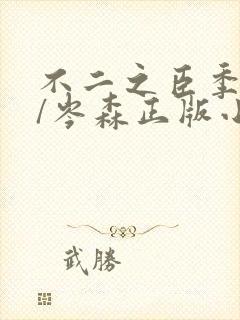 不二之臣季
/岑森正版小
武勝